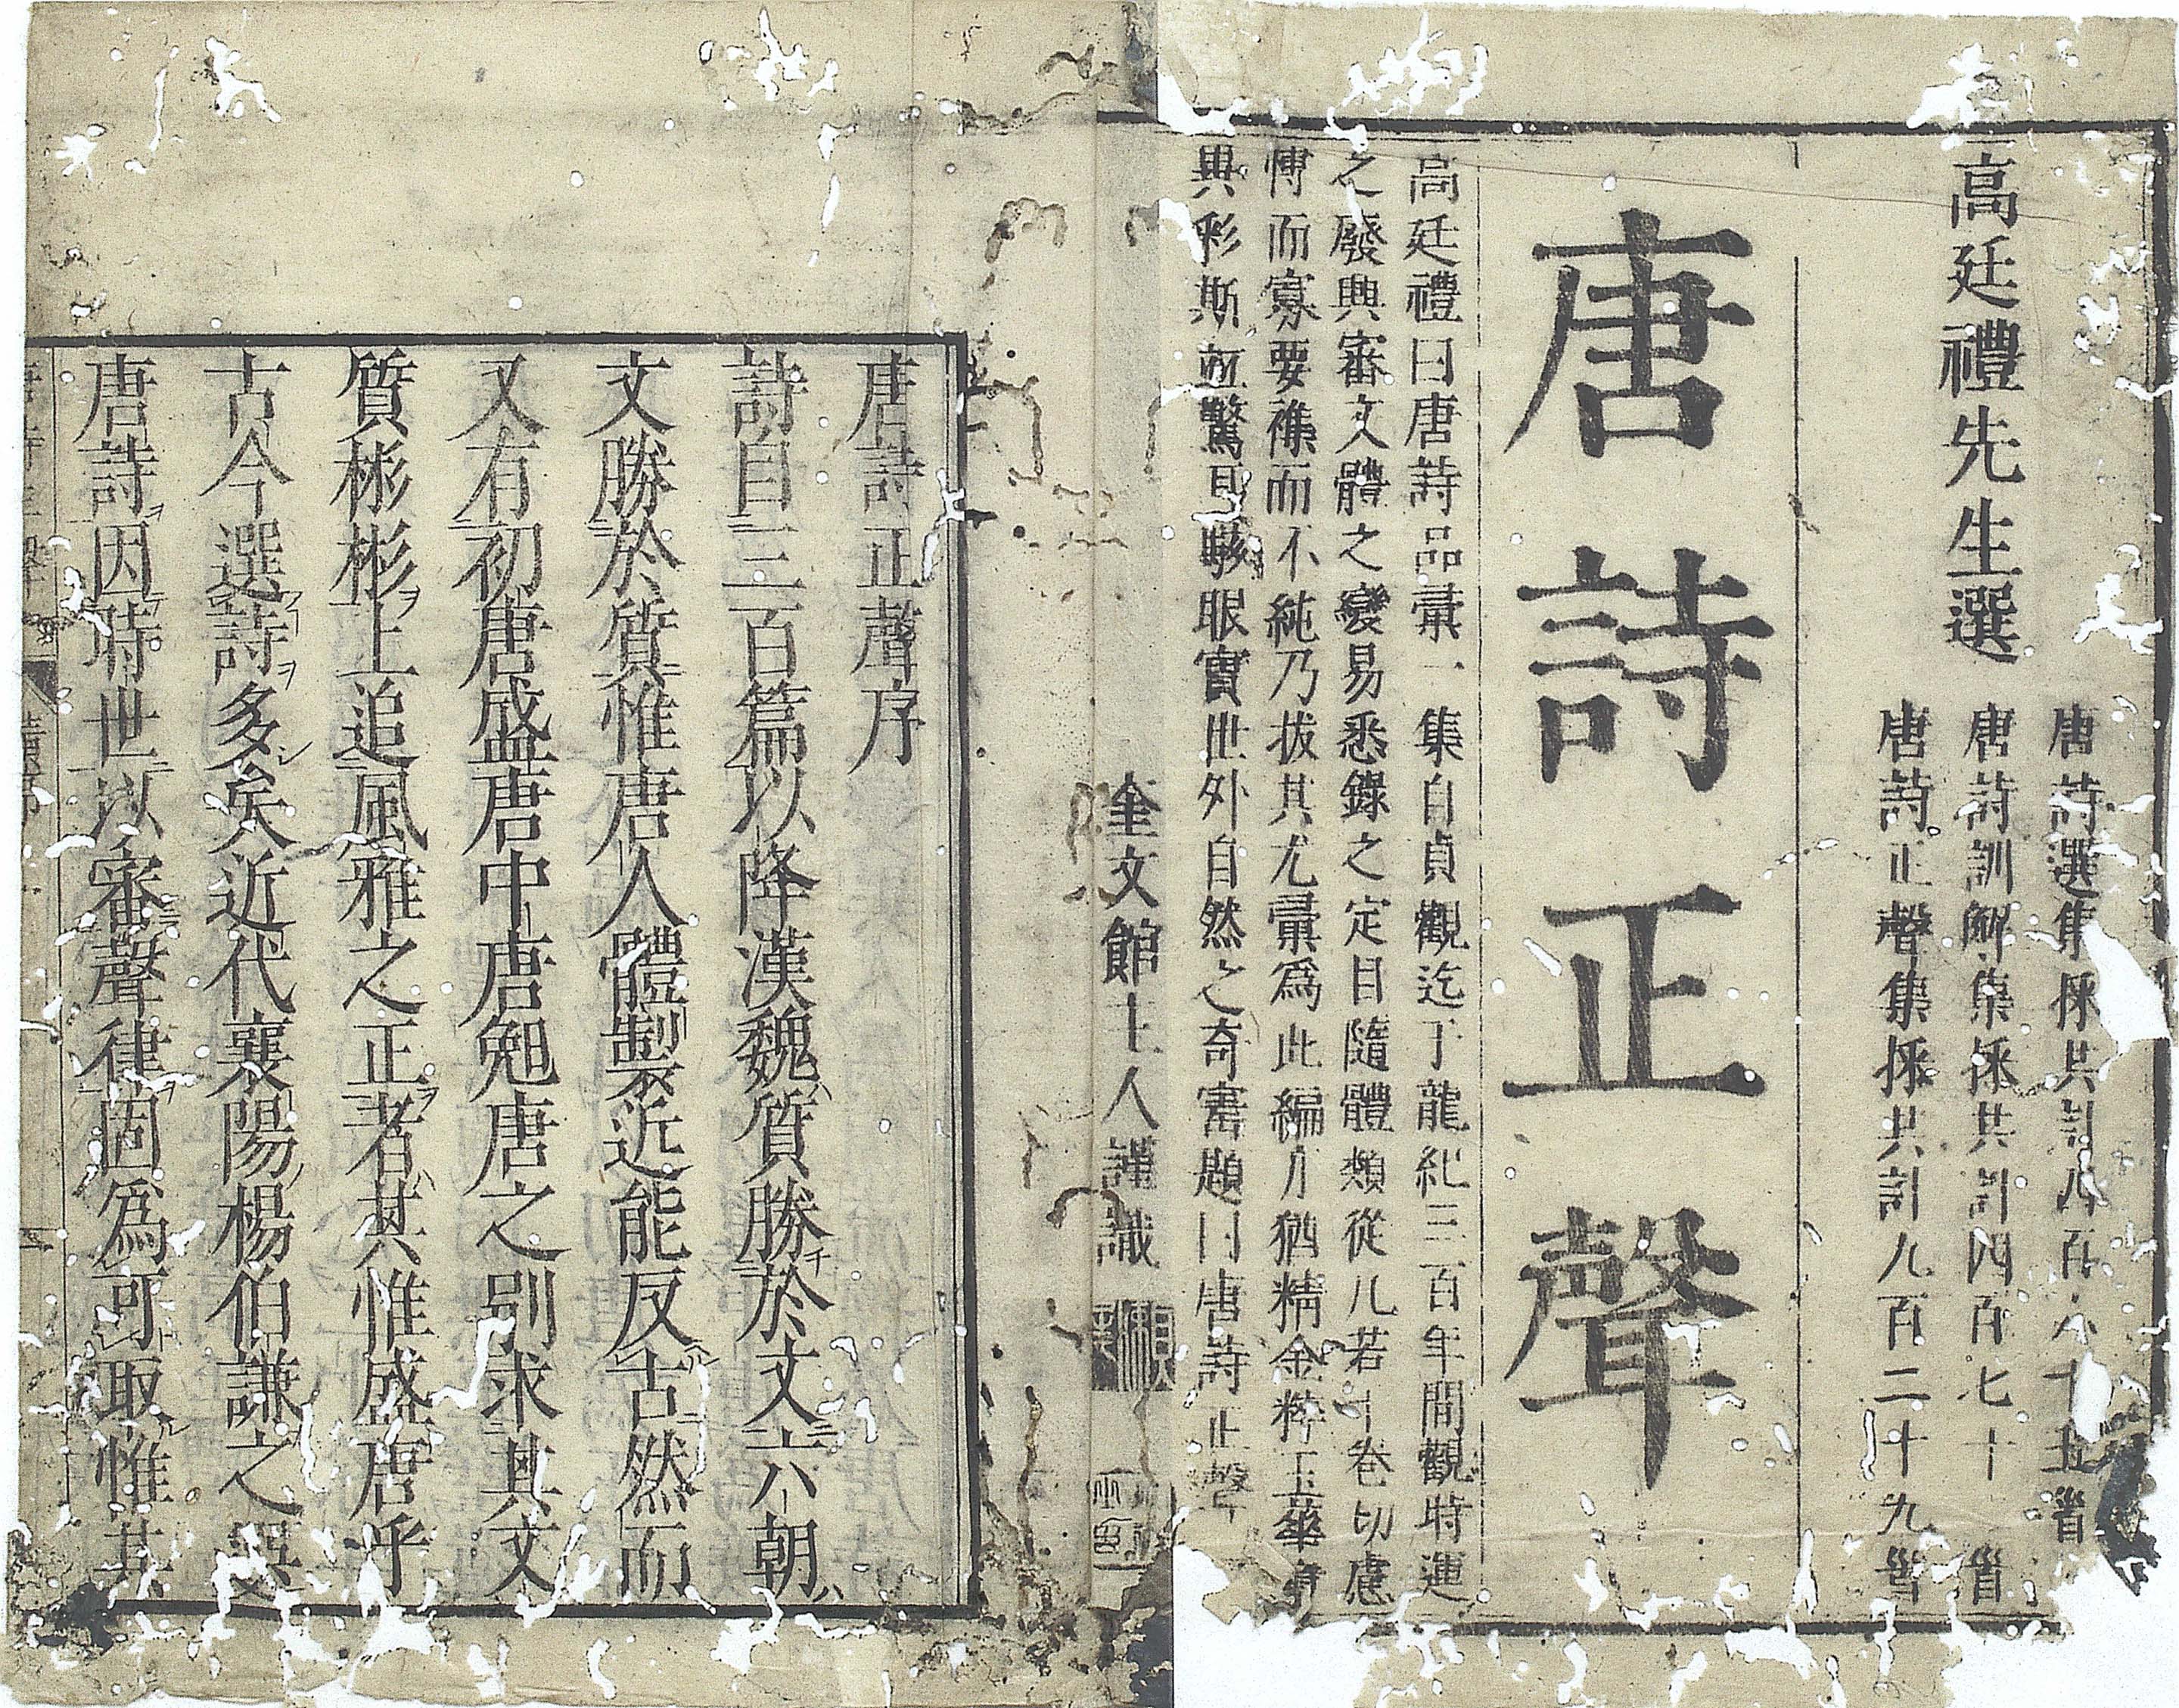 高廷禮先生選
唐詩選集採共計四百六十五首
唐詩訓解集採共計四百七十首
唐詩正聲集採共計九百二十九首
唐詩正聲
高廷禮曰唐詩品彙一集自貞觀迄于龍紀三百年間觀時運
之廢興審文人體之變易悉錄之定目隨體類從凡若干卷切慮
博而寡要襍而不純乃拔其尤彙爲此編亦猶精金粹玉華章
異彩斯並驚耳駭眼實世外自然之奇寶題曰唐詩正聲
奎文館主人謹識
唐詩正聲序
詩自三百篇以降漢魏質勝於文六朝
文勝於質惟唐人體製近能反古然而
又有初唐盛唐中唐晚唐之別求其文
質彬彬上追風雅之正者其惟盛唐乎
古今選詩多矣近代襄陽楊伯謙之選
唐詩因時世以審聲律固爲可取惟其